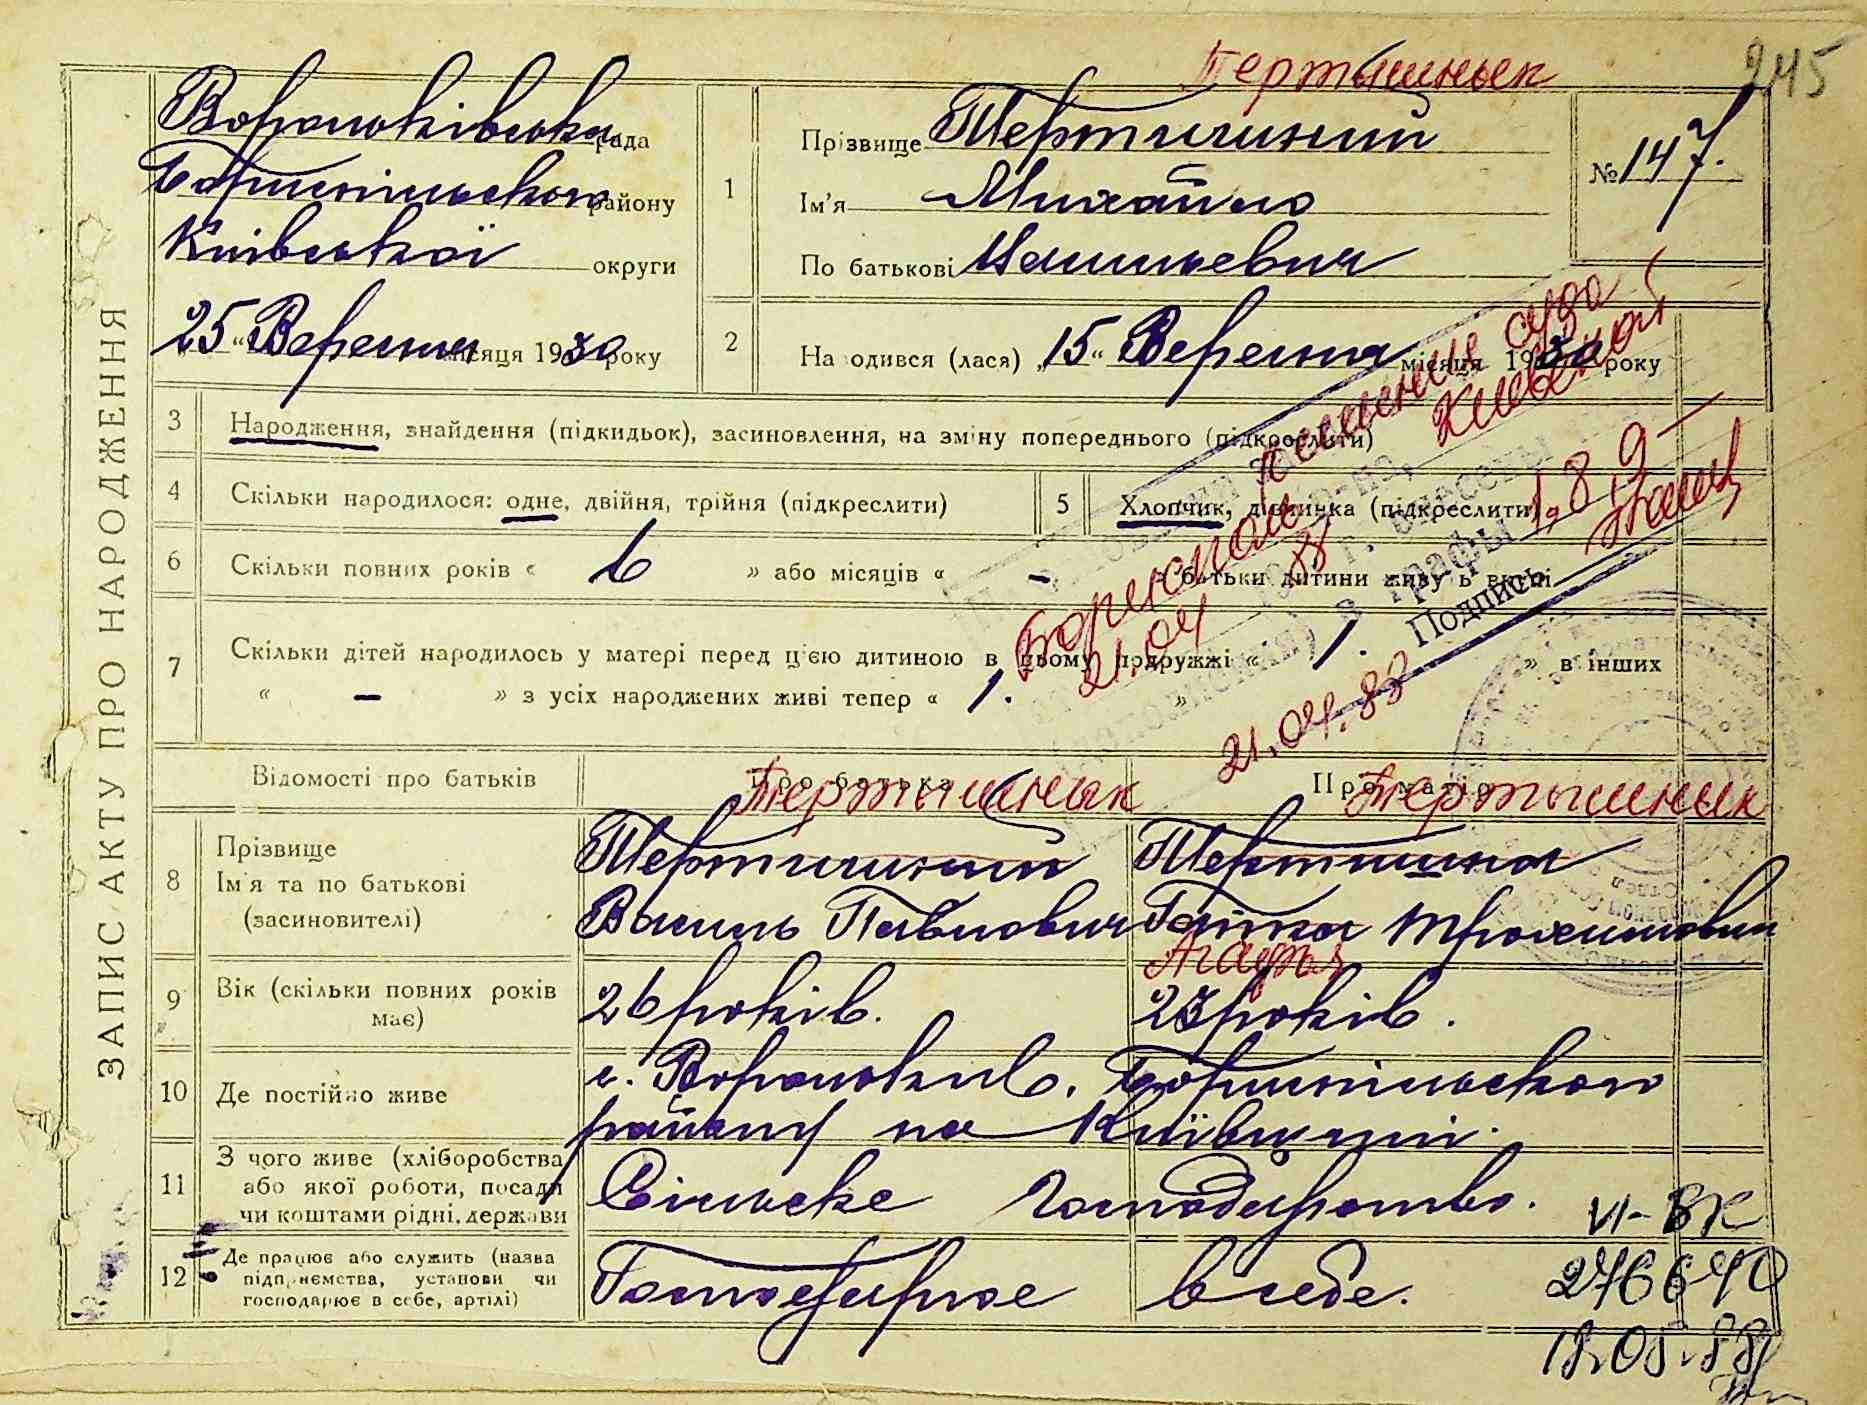 Тертышнык
245
ЗАПИС АКТУ ПРО НАРОДЖЕННЯ
Вороньківська рада
Бориспільського району
Київської округи
25 « Вересня місяця 1930 року
1
Прізвище Тертишний
Ім'я Михайло
По батькові Васильевич
№ 147.
2
Народився (лася) „15“ Вересня місяця 1930 року
3
Народження, знайдення (підкидьок), засиновлення, на зміну попереднього (підкреслити)
4
Скільки народилося: одне, двійня, трійня (підкреслити)
5
Хлопчик, дівчинка (підкреслити)
6
Скільки повних років « 6 » або місяців « - » батьки дитини живуть вкупі
7
Скільки дітей народилось у матері перед ц'єю дитиною в цьому подружжі « 1. » в інших
« – » з усіх народжених живі тепер « 1. »
суда
Бориспольского
Киевской
21.04
в графы 1,8,9
Подпись
21.04.88
Відомості про батьків
Про батька
Тертышнык
Про матір
Тертышнык
8
Прізвище
Ім'я та по батькові
(засиновителі)
Тертишний
Василь Павлович
Тертишна
Гапка Трохимовна
Агафья
9
Вік (скільки повних років має)
26 років.
23 років.
10
Де постійно живе
с. Вороньків, Бориспільського
району на Київщині.
11
З чого живе (хліборобства
або якої роботи, посади
чи коштами рідні, держави
Сільське господарство.
12
Де працює або служить (назва
підприємства, установи чи
господарює в себе, артілі)
Господарює в себе.
VI-БК
276640
18.05.88